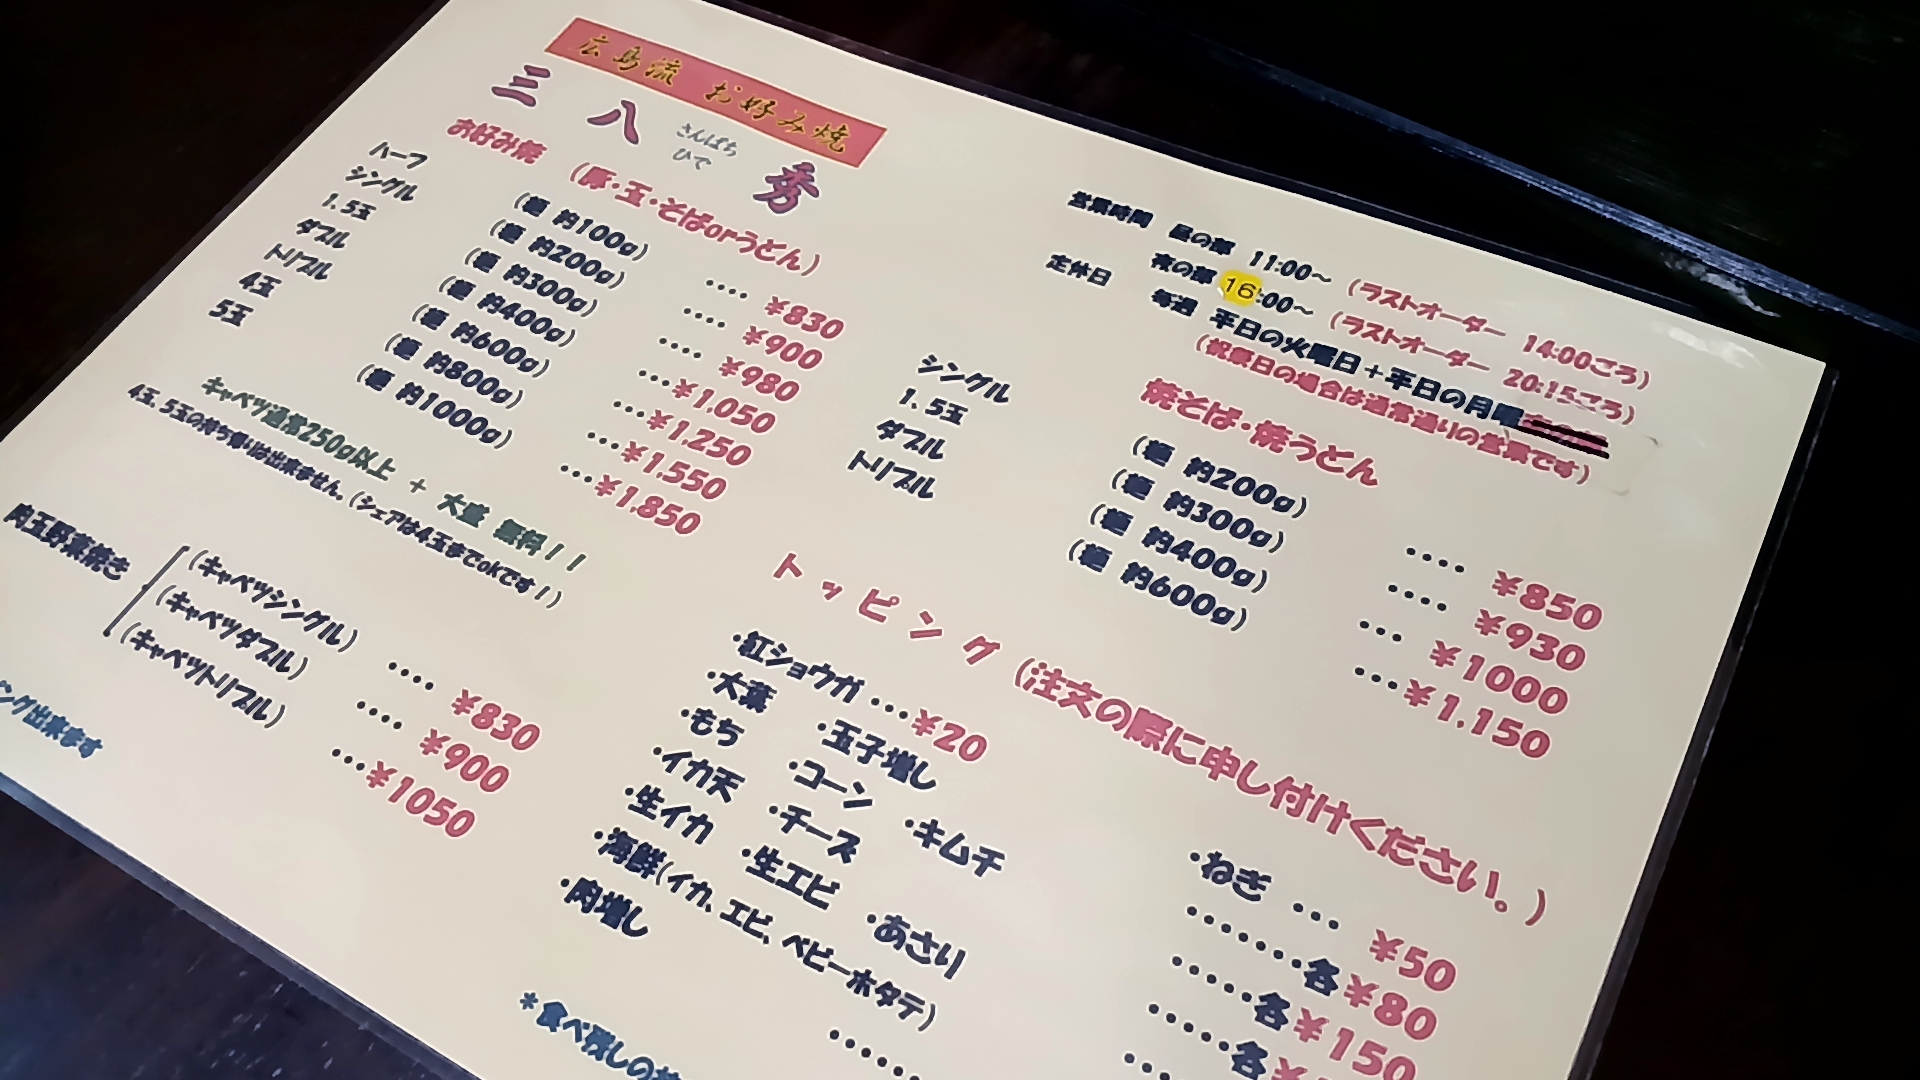 広島流 お好み焼
三 八 秀
さんぱち
ひで
お好み焼 (豚・玉・そばorうどん)
ハーフ (麺 約100g) ‥‥ ¥830
シングル (麺 約200g) ‥‥ ¥900
1.5玉 (麺 約300g) ‥‥ ¥980
ダブル (麺 約400g) …¥1.050
トリプル (麺 約600g) …¥1.250
4玉 (麺 約800g) …¥1.550
5玉 (麺 約1000g) …¥1.850
キャベツ通常250g以上 + 大盛 無料!!
4玉、5玉の持ち帰りは出来ません。(シェアは4玉までokです!)
肉玉野菜焼き
(キャベツシングル) ‥‥ ¥830
(キャベツダブル) ‥‥ ¥900
(キャベツトリプル) …¥1050
ング出来ます
営業時間 昼の部 11:00~ (ラストオーダー 14:00ごろ)
夜の部 16:00~ (ラストオーダー 20:15ごろ)
定休日 毎週 平日の火曜日+平日の月曜
(祝祭日の場合は通常通りの営業です)
焼そば・焼うどん
シングル (麺 約200g) ‥‥ ¥850
1.5玉 (麺 約300g) ‥‥ ¥930
ダブル (麺 約400g) … ¥1000
トリプル (麺 約600g) …¥1.150
トッピング(注文の際に申し付けください。)
・紅ショウガ…¥20 ・ねぎ … ¥50
・大葉 ・玉子増し ・キムチ ‥‥‥‥各¥80
・もち ・コーン ‥‥‥各¥150
・イカ天 ・チース ・あさり ‥‥‥各¥
・生イカ ・生エビ
・海鮮(イカ、エビ、ベビーホタテ)
・肉増し ‥‥‥
*食べ残しの